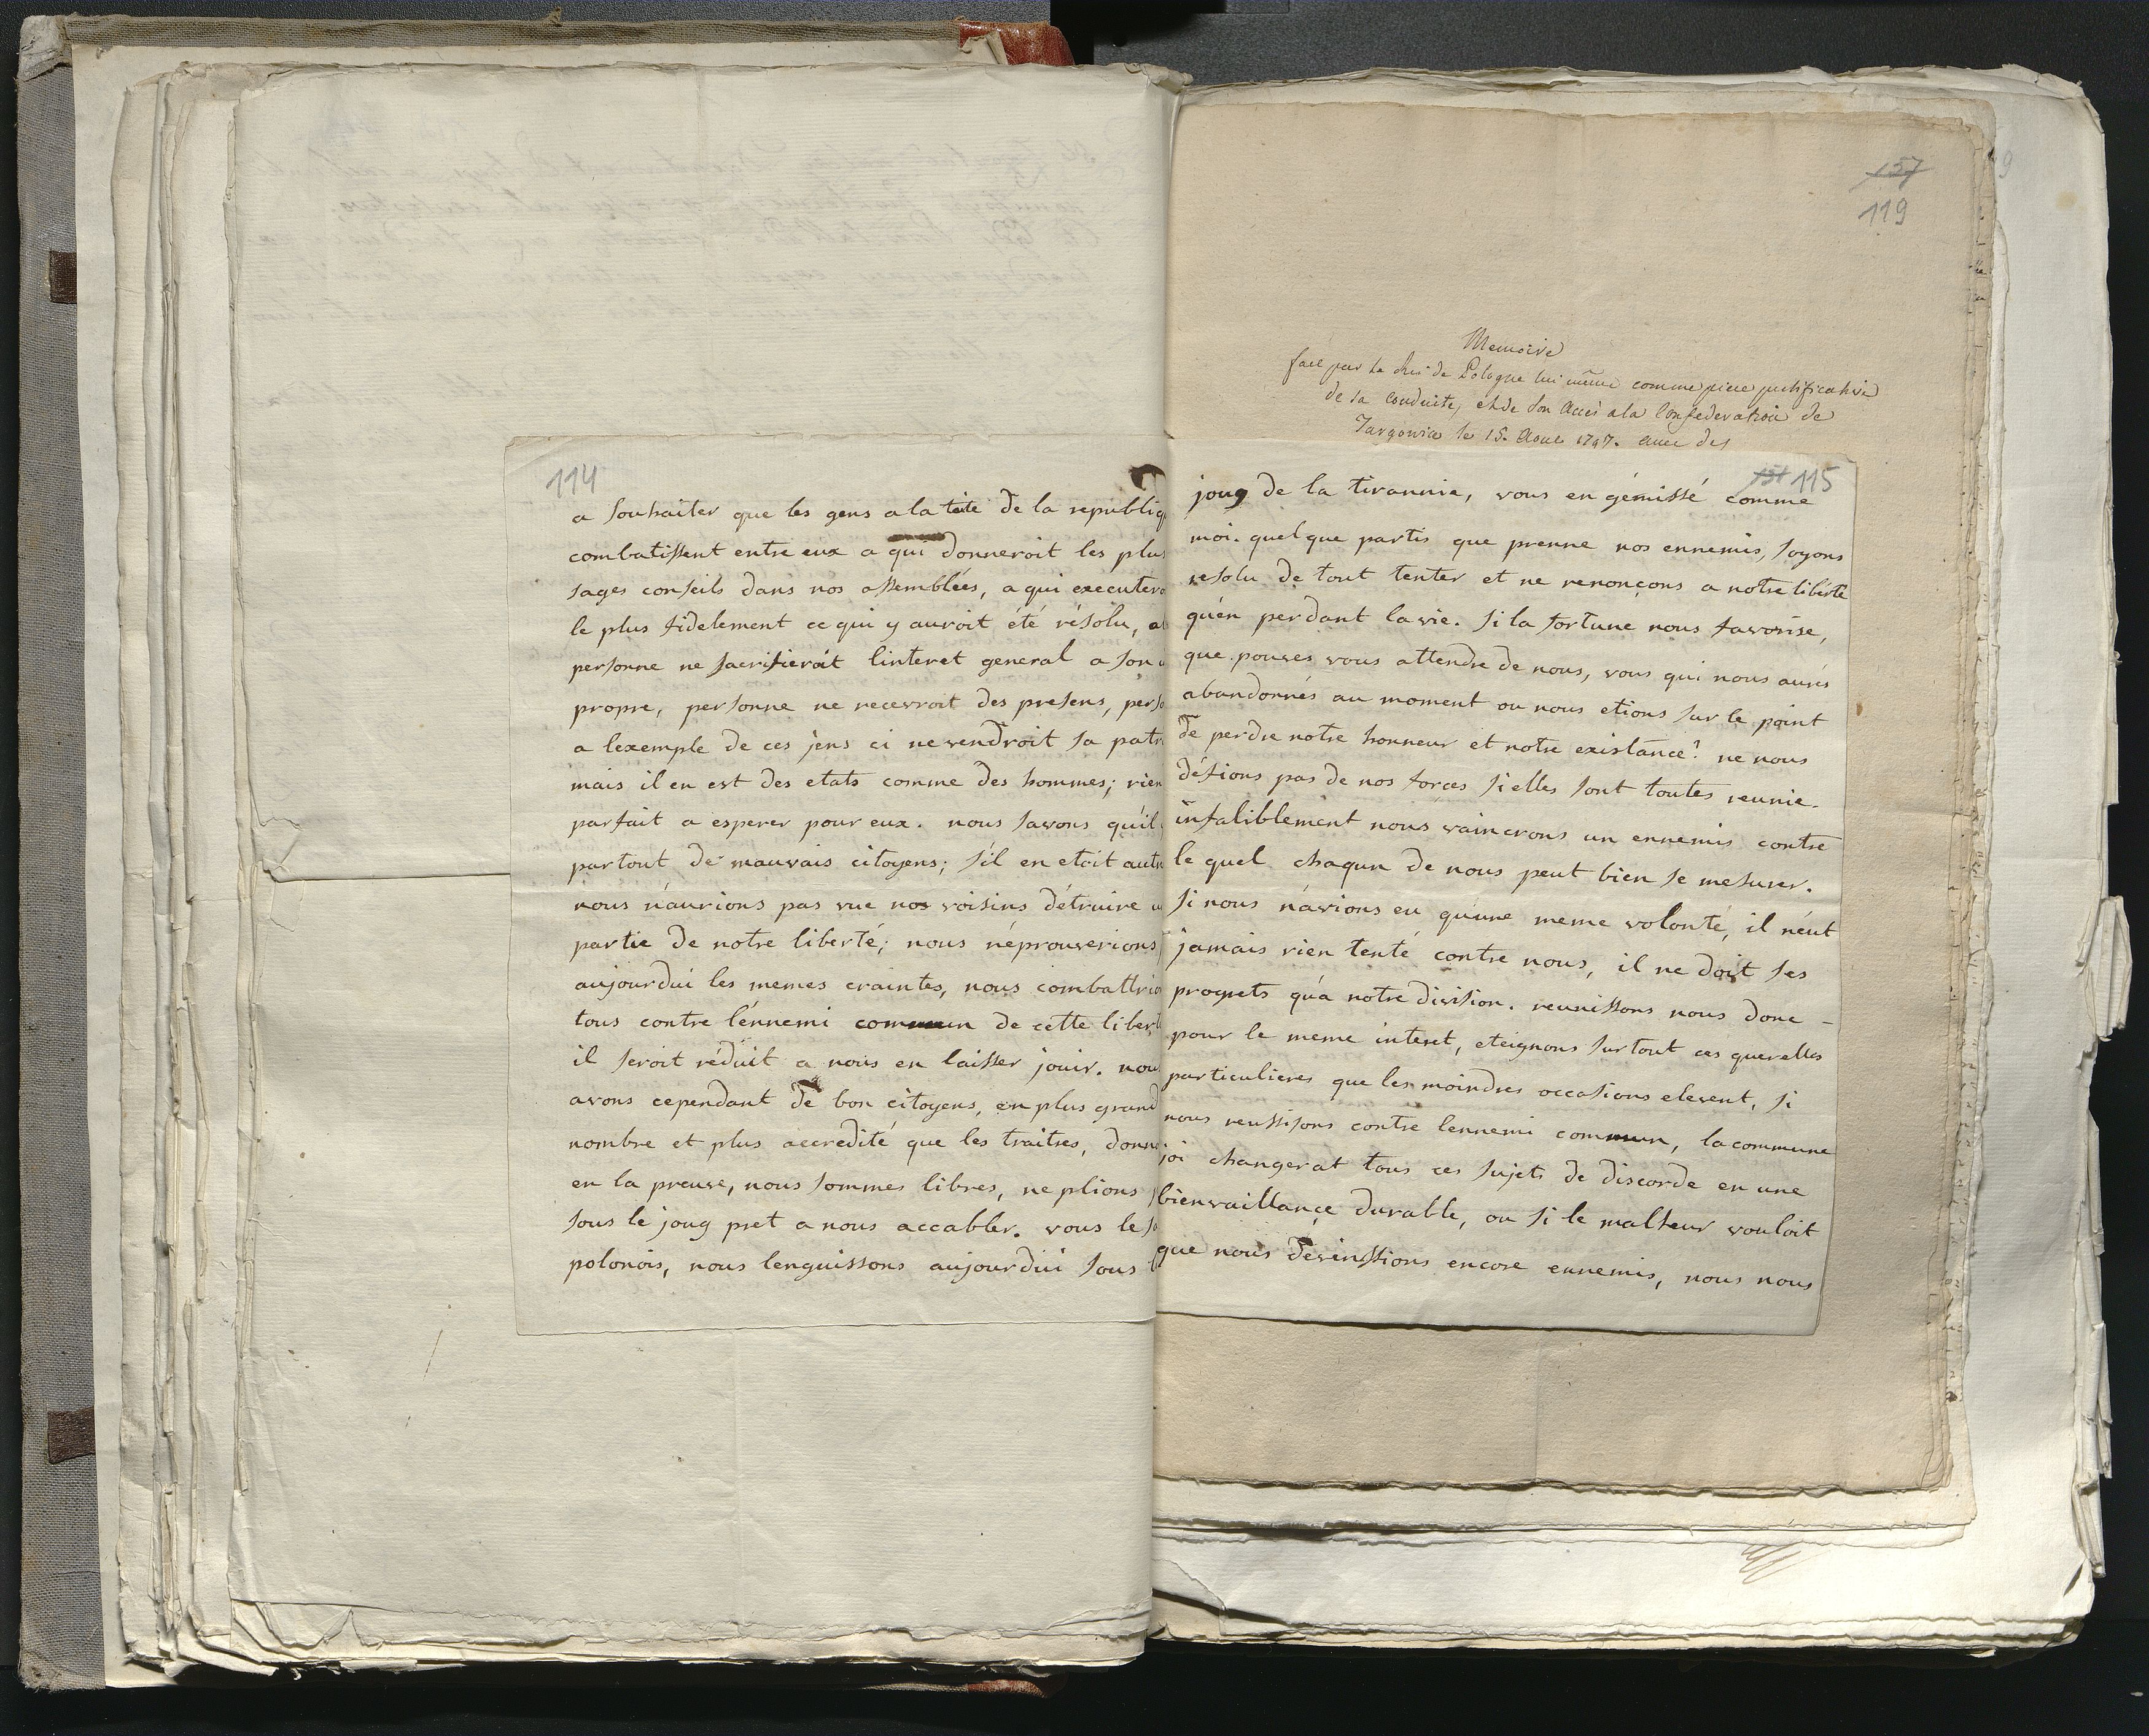 114
a souhaiter que les gens a la tête de la republiq
combatissent entre eux a qui donneroit les plus
sages conseils dans nos assemblées, a qui executero
le plus fidelement ce qui y auroit été résolu,
personne ne sacrifieroit linteret general a son
propre, personne ne recevroit des presens, perso
a lexemple de ces jens ci ne vendroit sa patri
mais il en est des etats comme des hommes; rien
parfait a esperer pour eux. nous savons qu'il
partout de mauvais citoyens; s'il en etoit autr
nous n'aurions pas vue nos voisins détruire u
partie de notre liberté; nous néprouverions
aujourdui les memes craintes, nous combattrio
tous contre l'ennemi commun de cette libert
il seroit réduit a nous en laisser jouir. nou
avons cependant de bon citoyens, en plus grand
nombre et plus accredité que les traitres, donn
en la preuve, nous sommes libres, ne plions
sous le joug pret a nous accabler. vous le sa
polonois, nous lenguissons aujourdui sous l
157
119
Memoire
fait par Le Roi de Pologne lui même comme piece justificative
de sa conduite, et de son Accès a la Confederation de
Targowica le 15. Aout 1797. avec des
151 115
joug de la tirannie, vous en gémissé comme
moi. quelque partis que prenne nos ennemis, soyons
resolu de tout tenter et ne renonçons a notre liberté
qu'en perdant la vie. si la fortune nous favorise,
que pouves vous attendre de nous, vous qui nous aurés
abandonnés au moment ou nous etions sur le point
de perdre notre honneur et notre existance? ne nous
défions pas de nos forces si elles sont toutes reunie.
infaliblement nous vaincrons un ennemis contre
le quel chaqun de nous peut bien se mesurer.
si nous n'avions eu qu'une meme volonté, il n'eut
jamais rien tenté contre nous, il ne doit ses
progrets qu'a notre division. reunissons nous donc -
pour le meme interet, eteignons surtout ces querelles
particulieres que les moindres occasions elevent, si
nous reussisons contre lennemi commun, la commune
joi changerat tous ces sujets de discorde en une
bienvaillançe durable, ou si le malheur vouloit
que nous devinssions encore ennemis, nous nous